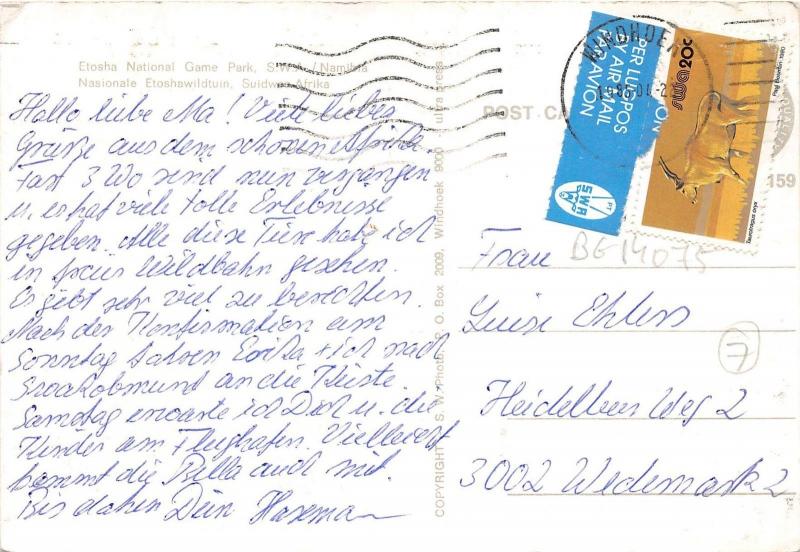 Etosha National Game Park, S.W.A./Namibia
Nasionale Etoshawildtuin, Suidwes-Afrika
Hallo liebe Ma! Viele liebe
Grüße aus dem schönen Afrika.
Fast 3 Wo sind nun vergangen
u. es hat viele tolle Erlebnisse
gegeben. Alle diese Tiere habe ich
in freier Wildbahn gesehen.
Es gibt sehr viel zu berichten.
Nach der Konfirmation am
Sonntag fahren Erika + ich nach
Swakobmund an die Küste.
Samstag erwarte ich Dich u. die
Kinder am Flughafen. Vielleicht
kommt die Bella auch mit.
Bis dahin Dein
COPYRIGHT S.W. Photo, P. O. Box 2009, Windhoek 9000 ultra press
POST CA
PER LUGPOS
BY AIR MAIL
PAR AVION
SWA
PT
WINDHOEK
swa 20c
Taurotragus oryx
159
BE 14075
Frau
Luise Ehlers
Heidelbeer Weg 2
3002 Wedemark 2
7